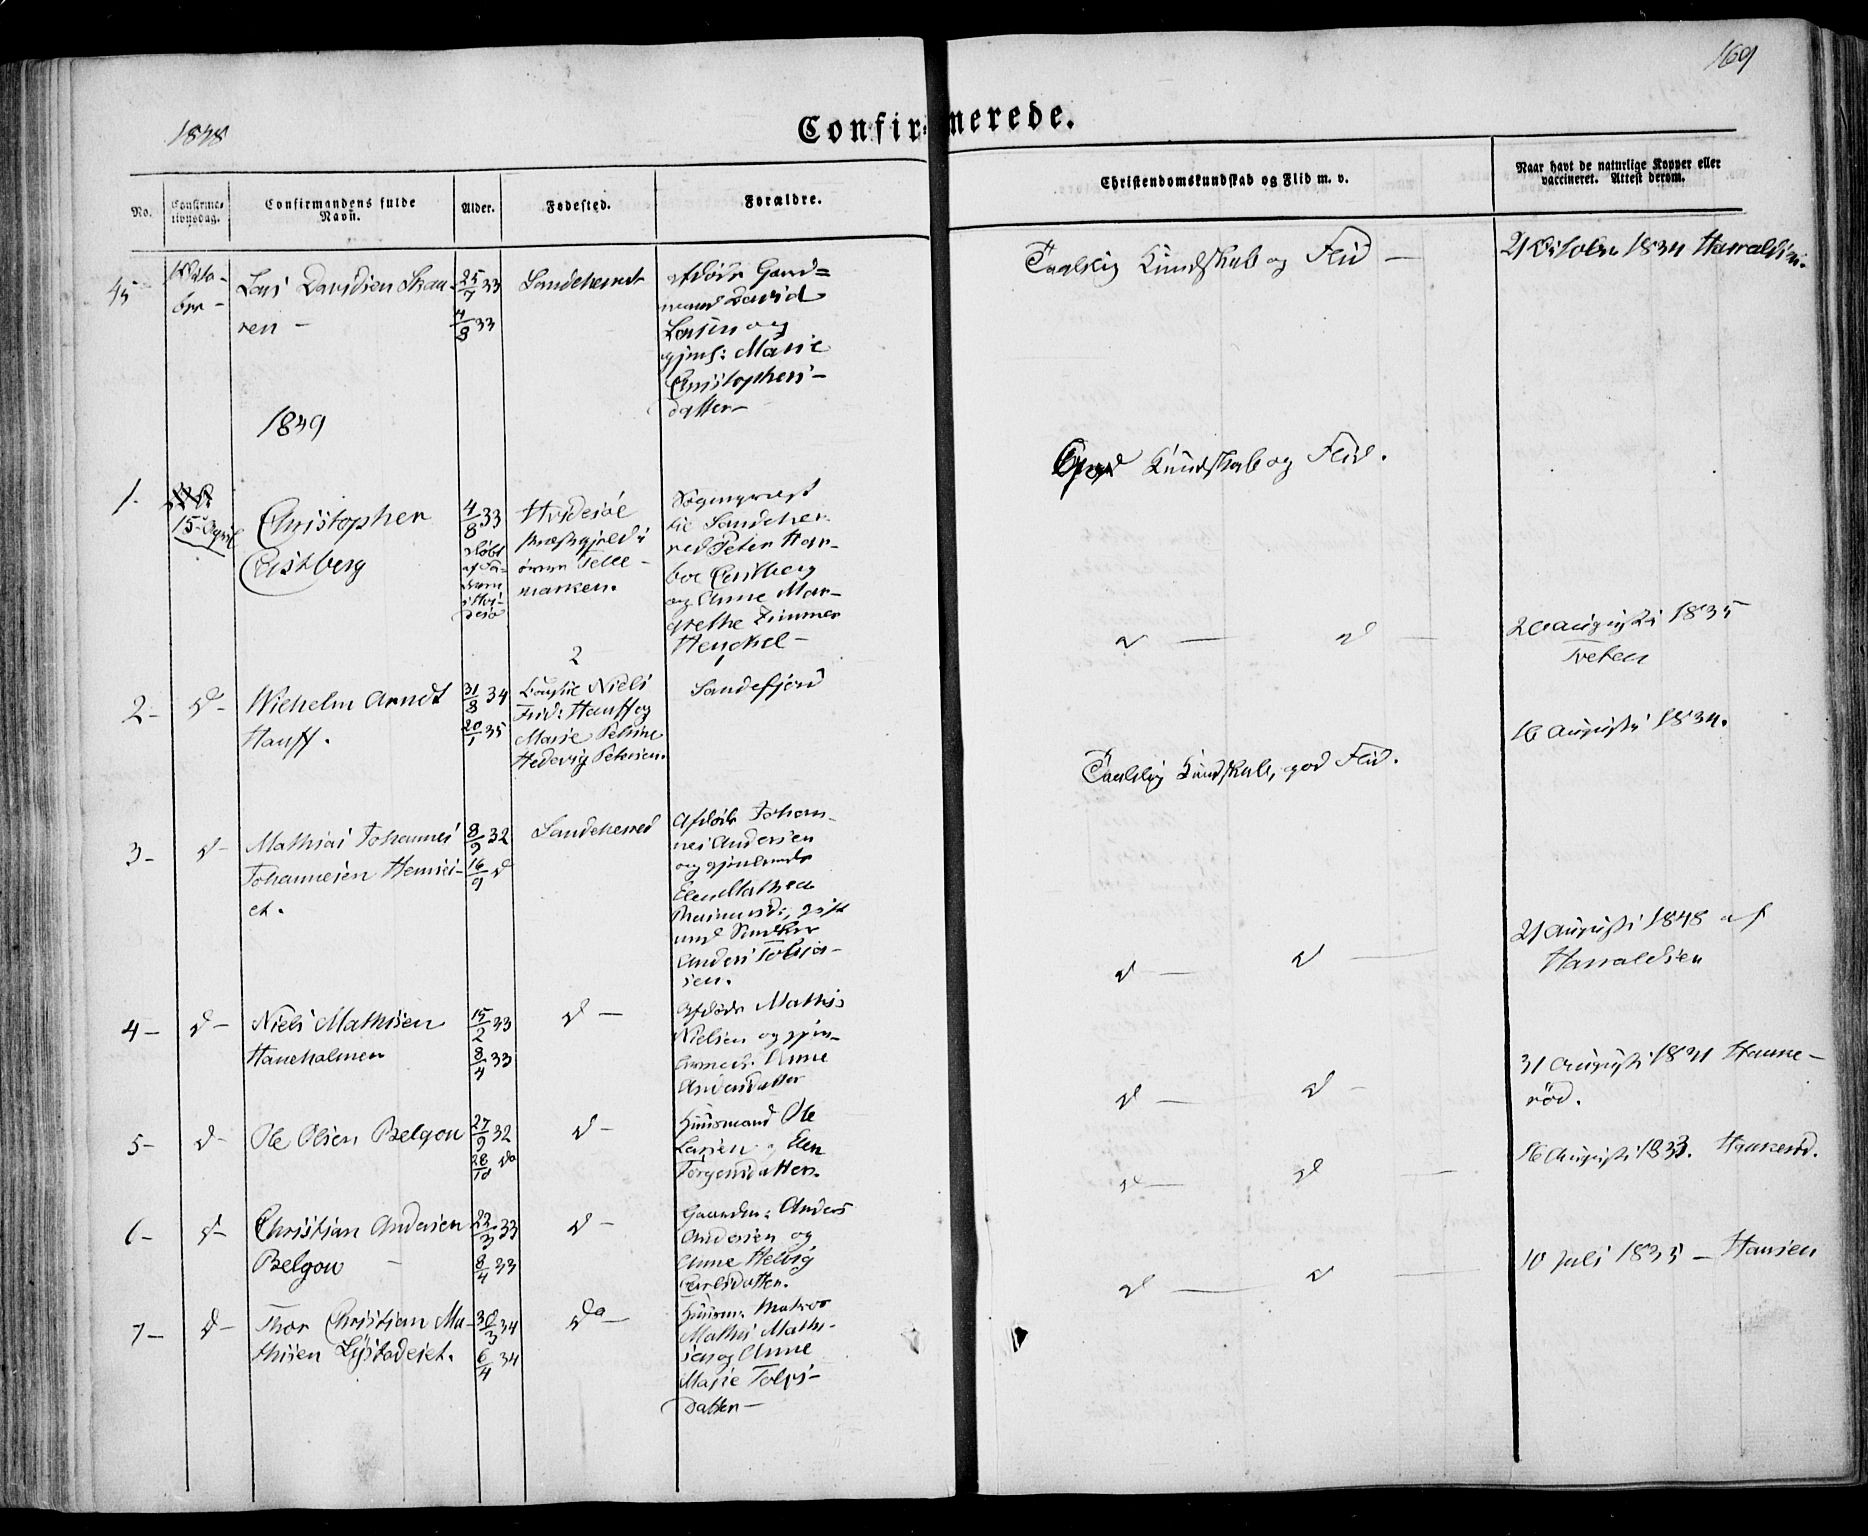 169
1848
Confirmerede.
No.
Confirma-
tionsdag.
Confirmandens fulde
Navn.
Alder.
Fødested.
Forældre.
Christendomskundskab og Flid m. v.
Naar havt de naturlige Kopper eller
vaccineret. Attest derom.
45
Octo-
ber -
Lars Davidsen Skaa-
ren -
25/7 33
4/8 33
Sandeherred
afdøde Gaard-
mand David
Larsen og
gjenl: Marie
Christophers-
datter -
Taalelig Kundskab og Flid -
21 October 1834 Harraldsen.
1849
1.
15 April
Christopher
Eistberg
4/8 33
døbt
Hvidesøe
Præstegjeld i
øvre Telle-
marken.
Sogneprest
til Sandeher-
red Peter Har-
boe Eistberg
og Anne Mar-
grethe Zimmer
Henchel -
God Kundskab og Flid.
2
2 -
d -
Wilhelm Arndt
Hauff.
31/8 34
20/1 35
Niels
Frid: Hauff og
Marie Petrine
Hedevig Petersen.
Sandefjord
d - d -
20 August 1835
Tveten
3 -
d -
Mathias Johannes
Johannesen Hemsei-
et.
8/9 32
16/9 d
Sandeherred
Afdøde Johan-
nes Andersen
og gjenlevende
Elen Mathea
Rasmusd:, gift
med
Anders Tobias-
sen.
Taalelig Kundskab, god Flid.
16 August 1834.
4 -
d -
Niels Mathisen
Haneholmen
15/2 33
8/4 33
d -
Afdøde Mathis
Nielsen og gjen-
levende Anne
Andersdatter
d - d -
21 August 1848 af
Harraldsen
5 -
d -
Ole Olsen Bælgou
27/9 32
28/10 do
d -
Huusmand Ole
Larsen og Elen
Jørgensdatter.
d - d -
31 August 1841 Haane-
rød.
6 -
d -
Christian Andersen
Bælgou -
22/3 33
8/4 33
d -
Gaardm: Anders
Andersen og
Anne Helvig
Carlsdatter.
d - d -
16 August 1833. Haanerød.
7 -
d -
Thor Christian Ma-
thisen Lystadeiet.
30/3 34
6/4 34
Do -
Huusm: Matros
Mathis Mathi-
sen og Anne
Marie Tolfs-
datter -
d - d -
10 Juli 1835 - Hansen